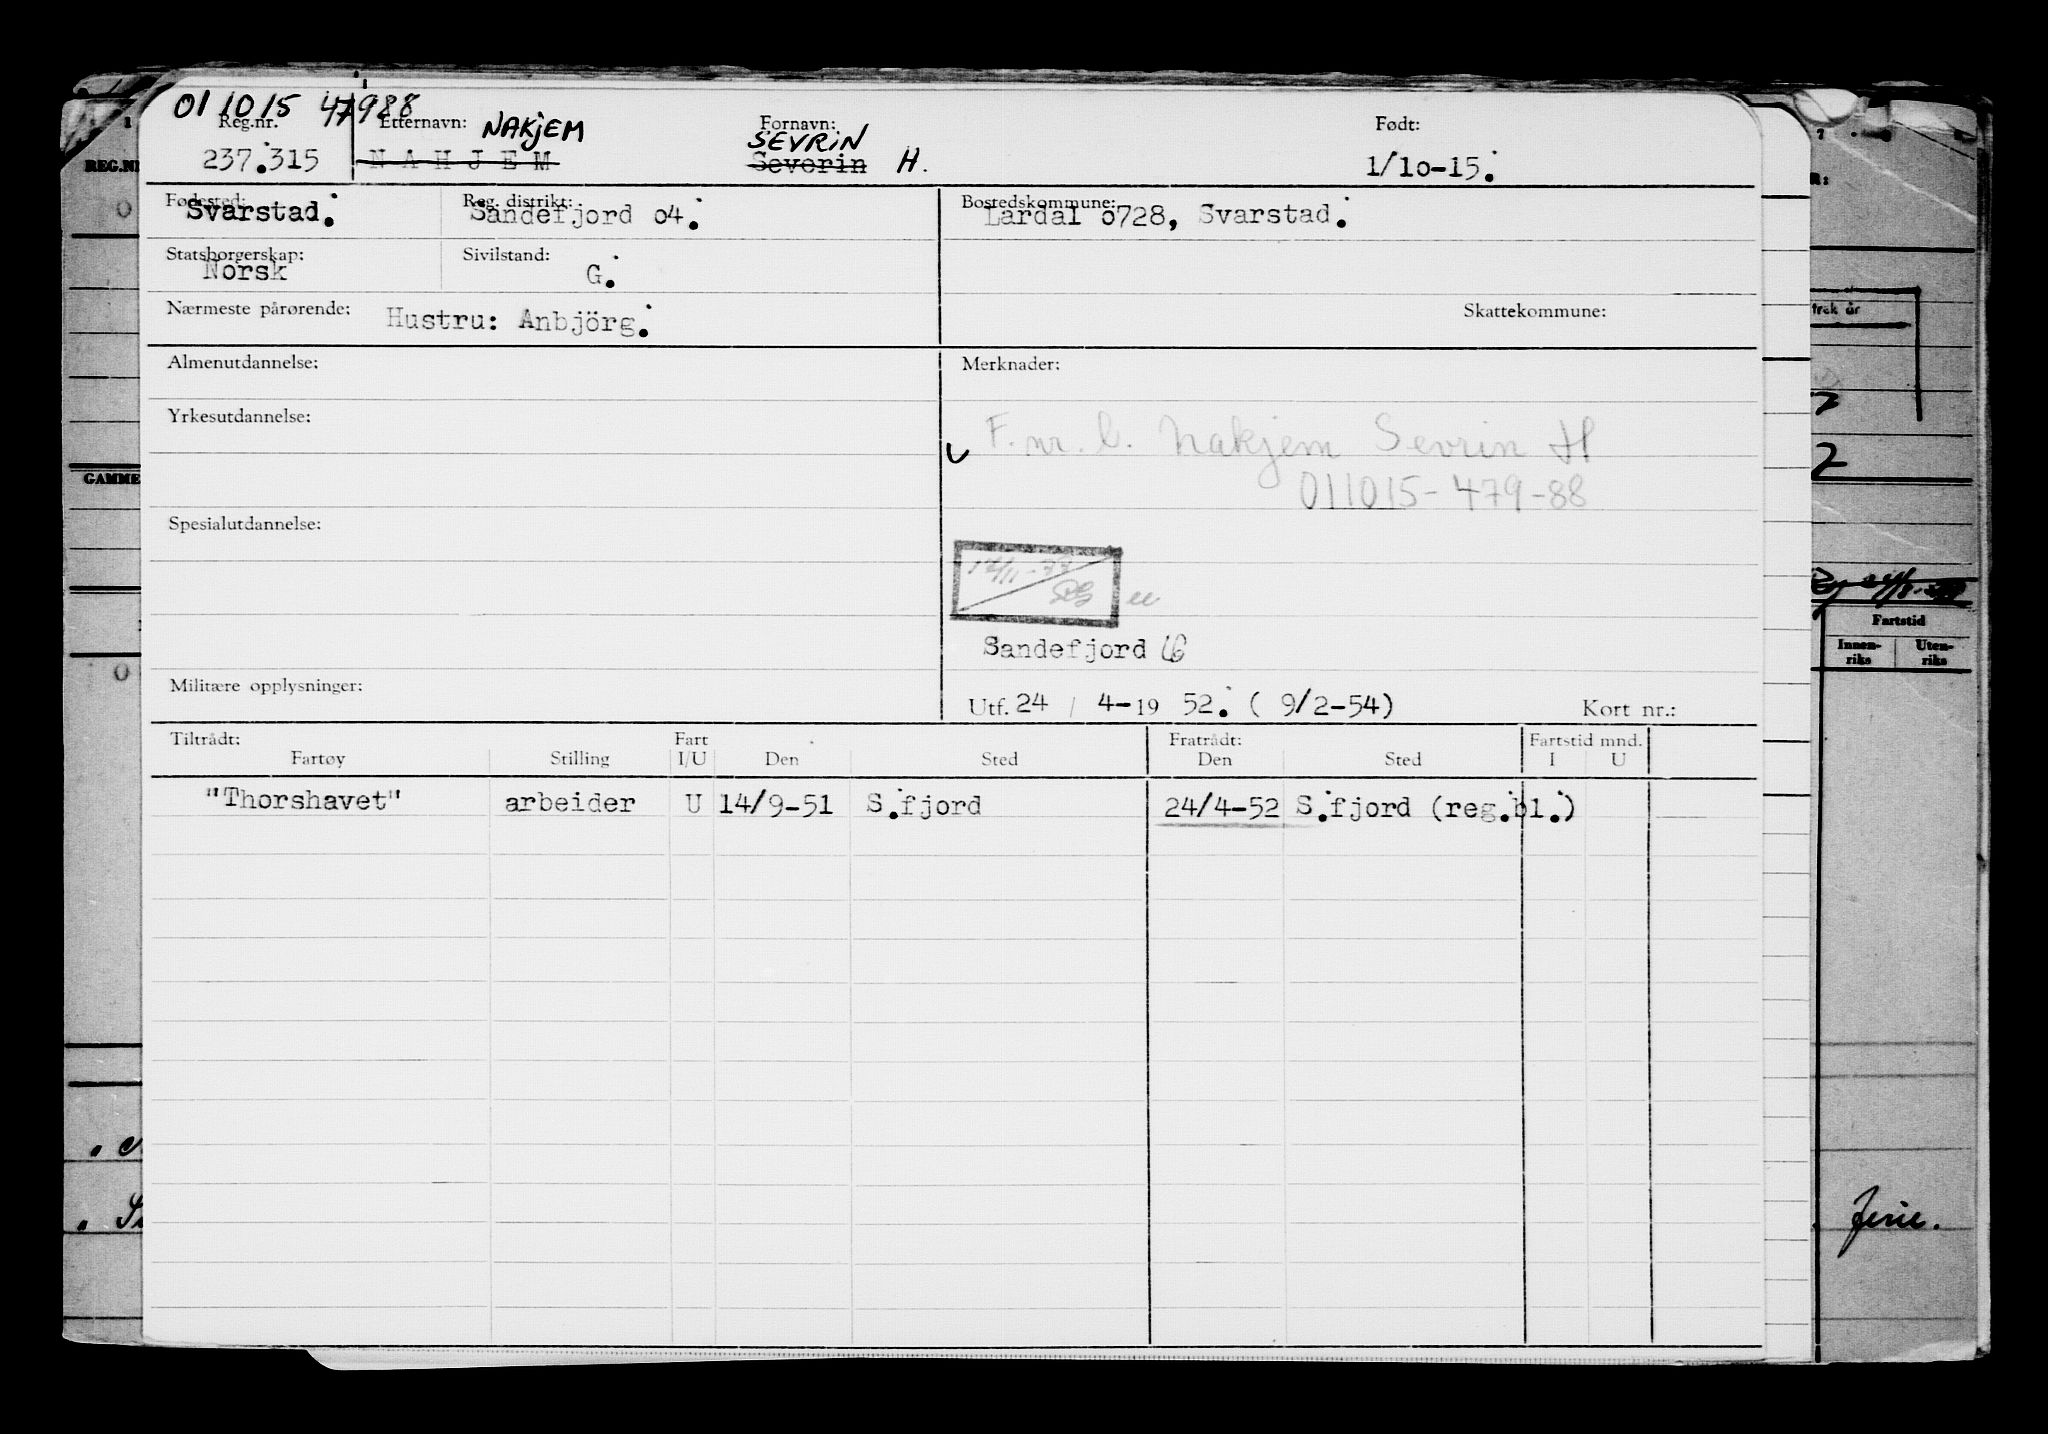 01 10 15 47988
Reg.nr. Etternavn: NAKJEM Fornavn: SEVRIN Født:
237.315 N A H J E M Severin H. 1/1o-15.
Fødested: Reg. distrikt: Bostedskommune:
Svarstad. Sandefjord o4. Lardal o728, Svarstad.
Statsborgerskap: Sivilstand:
Norsk G.
Nærmeste pårørende: Hustru: Anbjörg. Skattekommune:
Almenutdannelse: Merknader:
Yrkesutdannelse:
F. nr. b. Nakjem Sevrin H
011015-479-88
Spesialutdannelse:
Sandefjord
Militære opplysninger:
Utf. 24 / 4-19 52. ( 9/2-54) Kort nr.:
Tiltrådt: Fart Fratrådt: Fartstid mnd.
Fartøy Stilling I/U Den Sted Den Sted I U
"Thorshavet" arbeider U 14/9-51 S.fjord 24/4-52 S.fjord (reg.bl.)
REG.N
GAMME
trek år
2
Fartstid
Innen-riks Uten-riks
ferie.